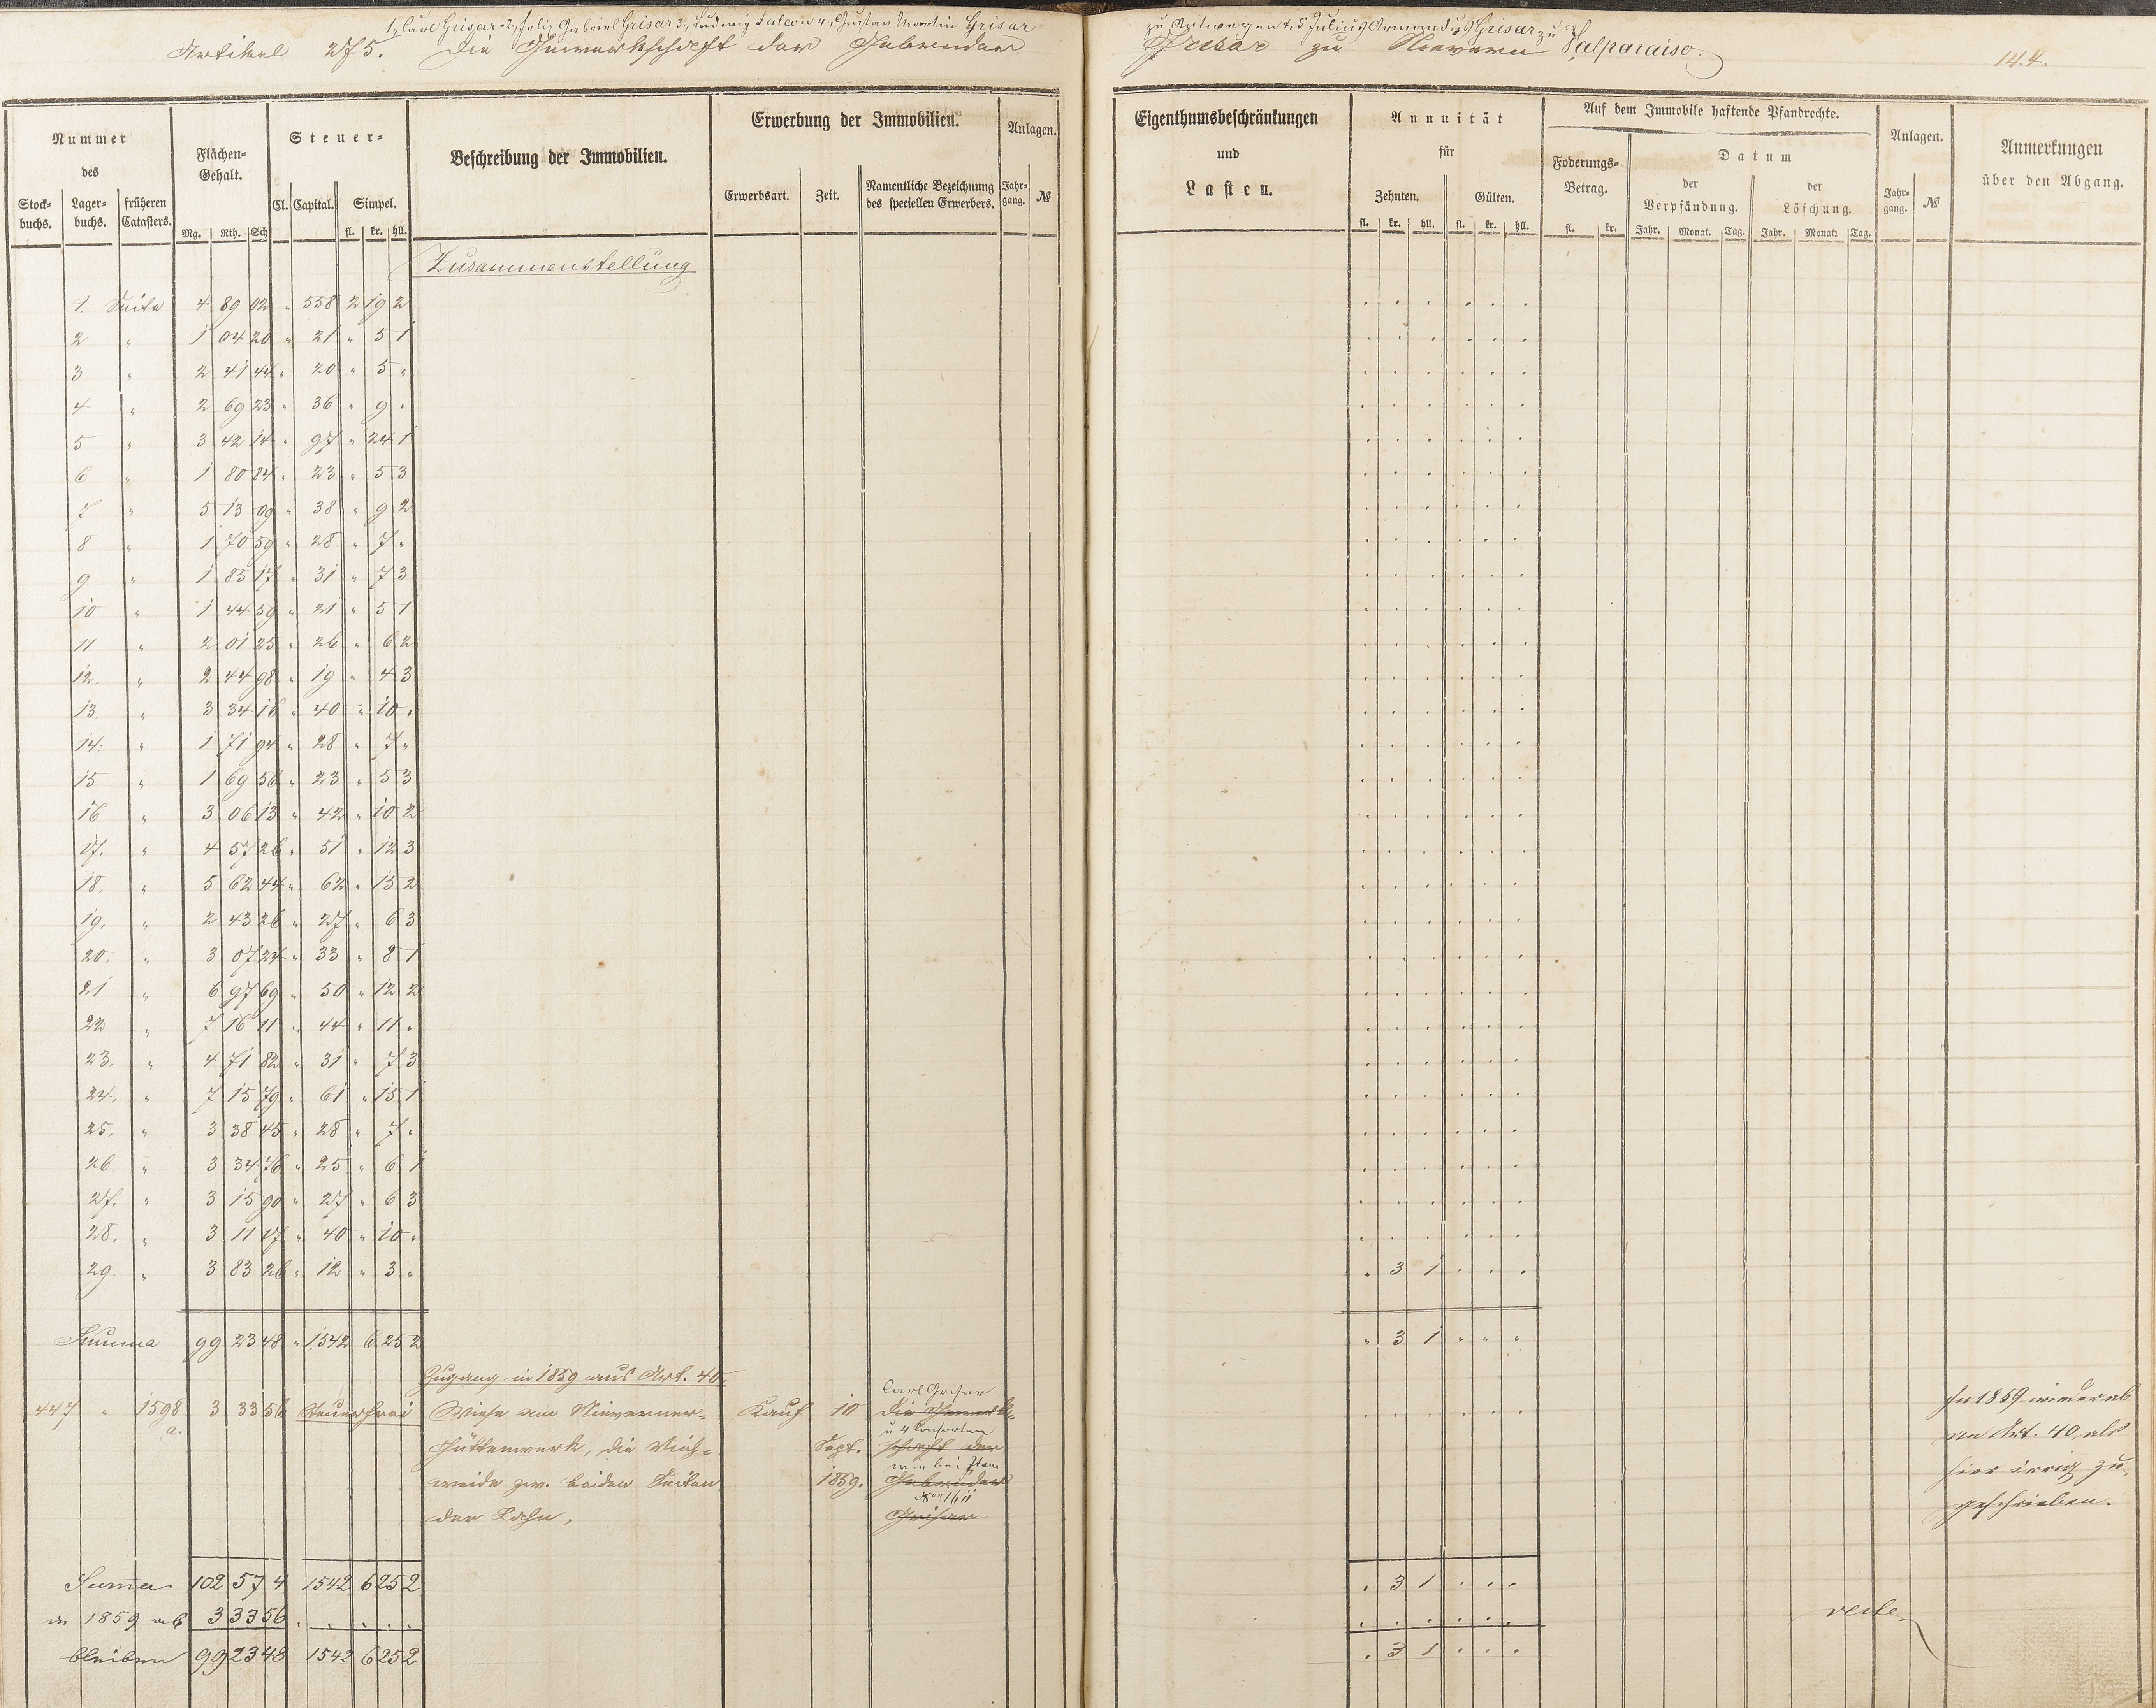 1, Carl Grisar 2, Felix Gabriel Grisar 3, Ludwig Falcon 4, Gustav Martin Grisar zu Antwerpen & 5 Julius Armandus Grisar zu Valparaiso.
Artikel 275. Die Gewerkschaft der Gebrüder Grisar zu Nievern
144.
Nummer des
Stock- buchs. Lager- buchs. früheren Catasters.
Flächen- Gehalt.
Mg. Rth. Sch
Steuer-
Cl. Capital. Simpel.
fl. kr. hll.
Beschreibung der Immobilien.
Erwerbung der Immobilien.
Erwerbsart. Zeit. Namentliche Bezeichnung des speciellen Erwerbers.
Anlagen.
Jahr- gang. №
Eigenthumsbeschränkungen
und
Lasten.
Annuität
für
Zehnten. Gülten.
fl. kr. hll. fl. kr. hll.
Auf dem Immobile haftende Pfandrechte.
Foderungs- Betrag.
fl. kr.
Datum
der Verpfändung. der Löschung.
Jahr. Monat. Tag. Jahr. Monat. Tag.
Anlagen.
Jahr- gang. №
Anmerkungen
über den Abgang.
Zusammenstellung
1. Seite 4 89 02 " 558 2 19 2
2 " 1 04 20 " 21 " 5 1
3 " 2 41 44 " 20 " 5 "
4 " 2 69 23 " 36 " 9 "
5 " 3 42 14 " 97 " 24 1
6 " 1 80 84 " 23 " 5 3
7 " 5 13 09 " 38 " 9 2
8 " 1 70 59 " 28 " 7 "
9 " 1 85 17 " 31 " 7 3
10 " 1 44 59 " 21 " 5 1
11 " 2 01 25 " 26 " 6 2
12. " 2 44 98 " 19 " 4 3
13. " 3 34 16 " 40 " 10 "
14. " 1 71 94 " 28 " 7 "
15 " 1 69 56 " 23 " 5 3
16 " 3 06 13 " 42 " 10 2
17. " 4 57 26 " 51 " 12 3
18. " 5 62 44 " 62 " 15 2
19. " 2 43 26 " 27 " 6 3
20. " 3 07 24 " 33 " 8 1
21 " 6 97 69 " 50 " 12 2
22 " 7 16 11 " 44 " 11 "
23. " 4 71 82 " 31 " 7 3
24. " 7 15 79 " 61 " 15 1
25. " 3 38 45 " 28 " 7 "
26. " 3 34 76 " 25 " 6 1
27. " 3 15 90 " 27 " 6 3
28. " 3 11 17 " 40 " 10 "
29. " 3 83 26 " 12 " 3 " . 3 1 . . .
Summa 99 23 48 " 1542 6 25 2 " 3 1 " " "
Zugang in 1859 aus Art. 40
447 " 1598 a. 3 33 56 Steuerfrei
Wiese am Nieverner-
Hüttenwerk, die Vieh-
weide zw. beiden Seiten
der Lahn,
Kauf
10
Sept.
1859.
Carl Grisar
Die Gewerk-
u 4 Consorten
schaft der
wie bei Item
Gebrüder
№ 1611
Grisar
In 1859 wieder ab
an Art. 40, als
hier irrig zu-
geschrieben.
Summa 102 57 4 1542 6 25 2 . 3 1 . . .
in 1859 ab 3 33 56 . . . . .
bleiben 99 23 48 1542 6 25 2 . 3 1 . . .